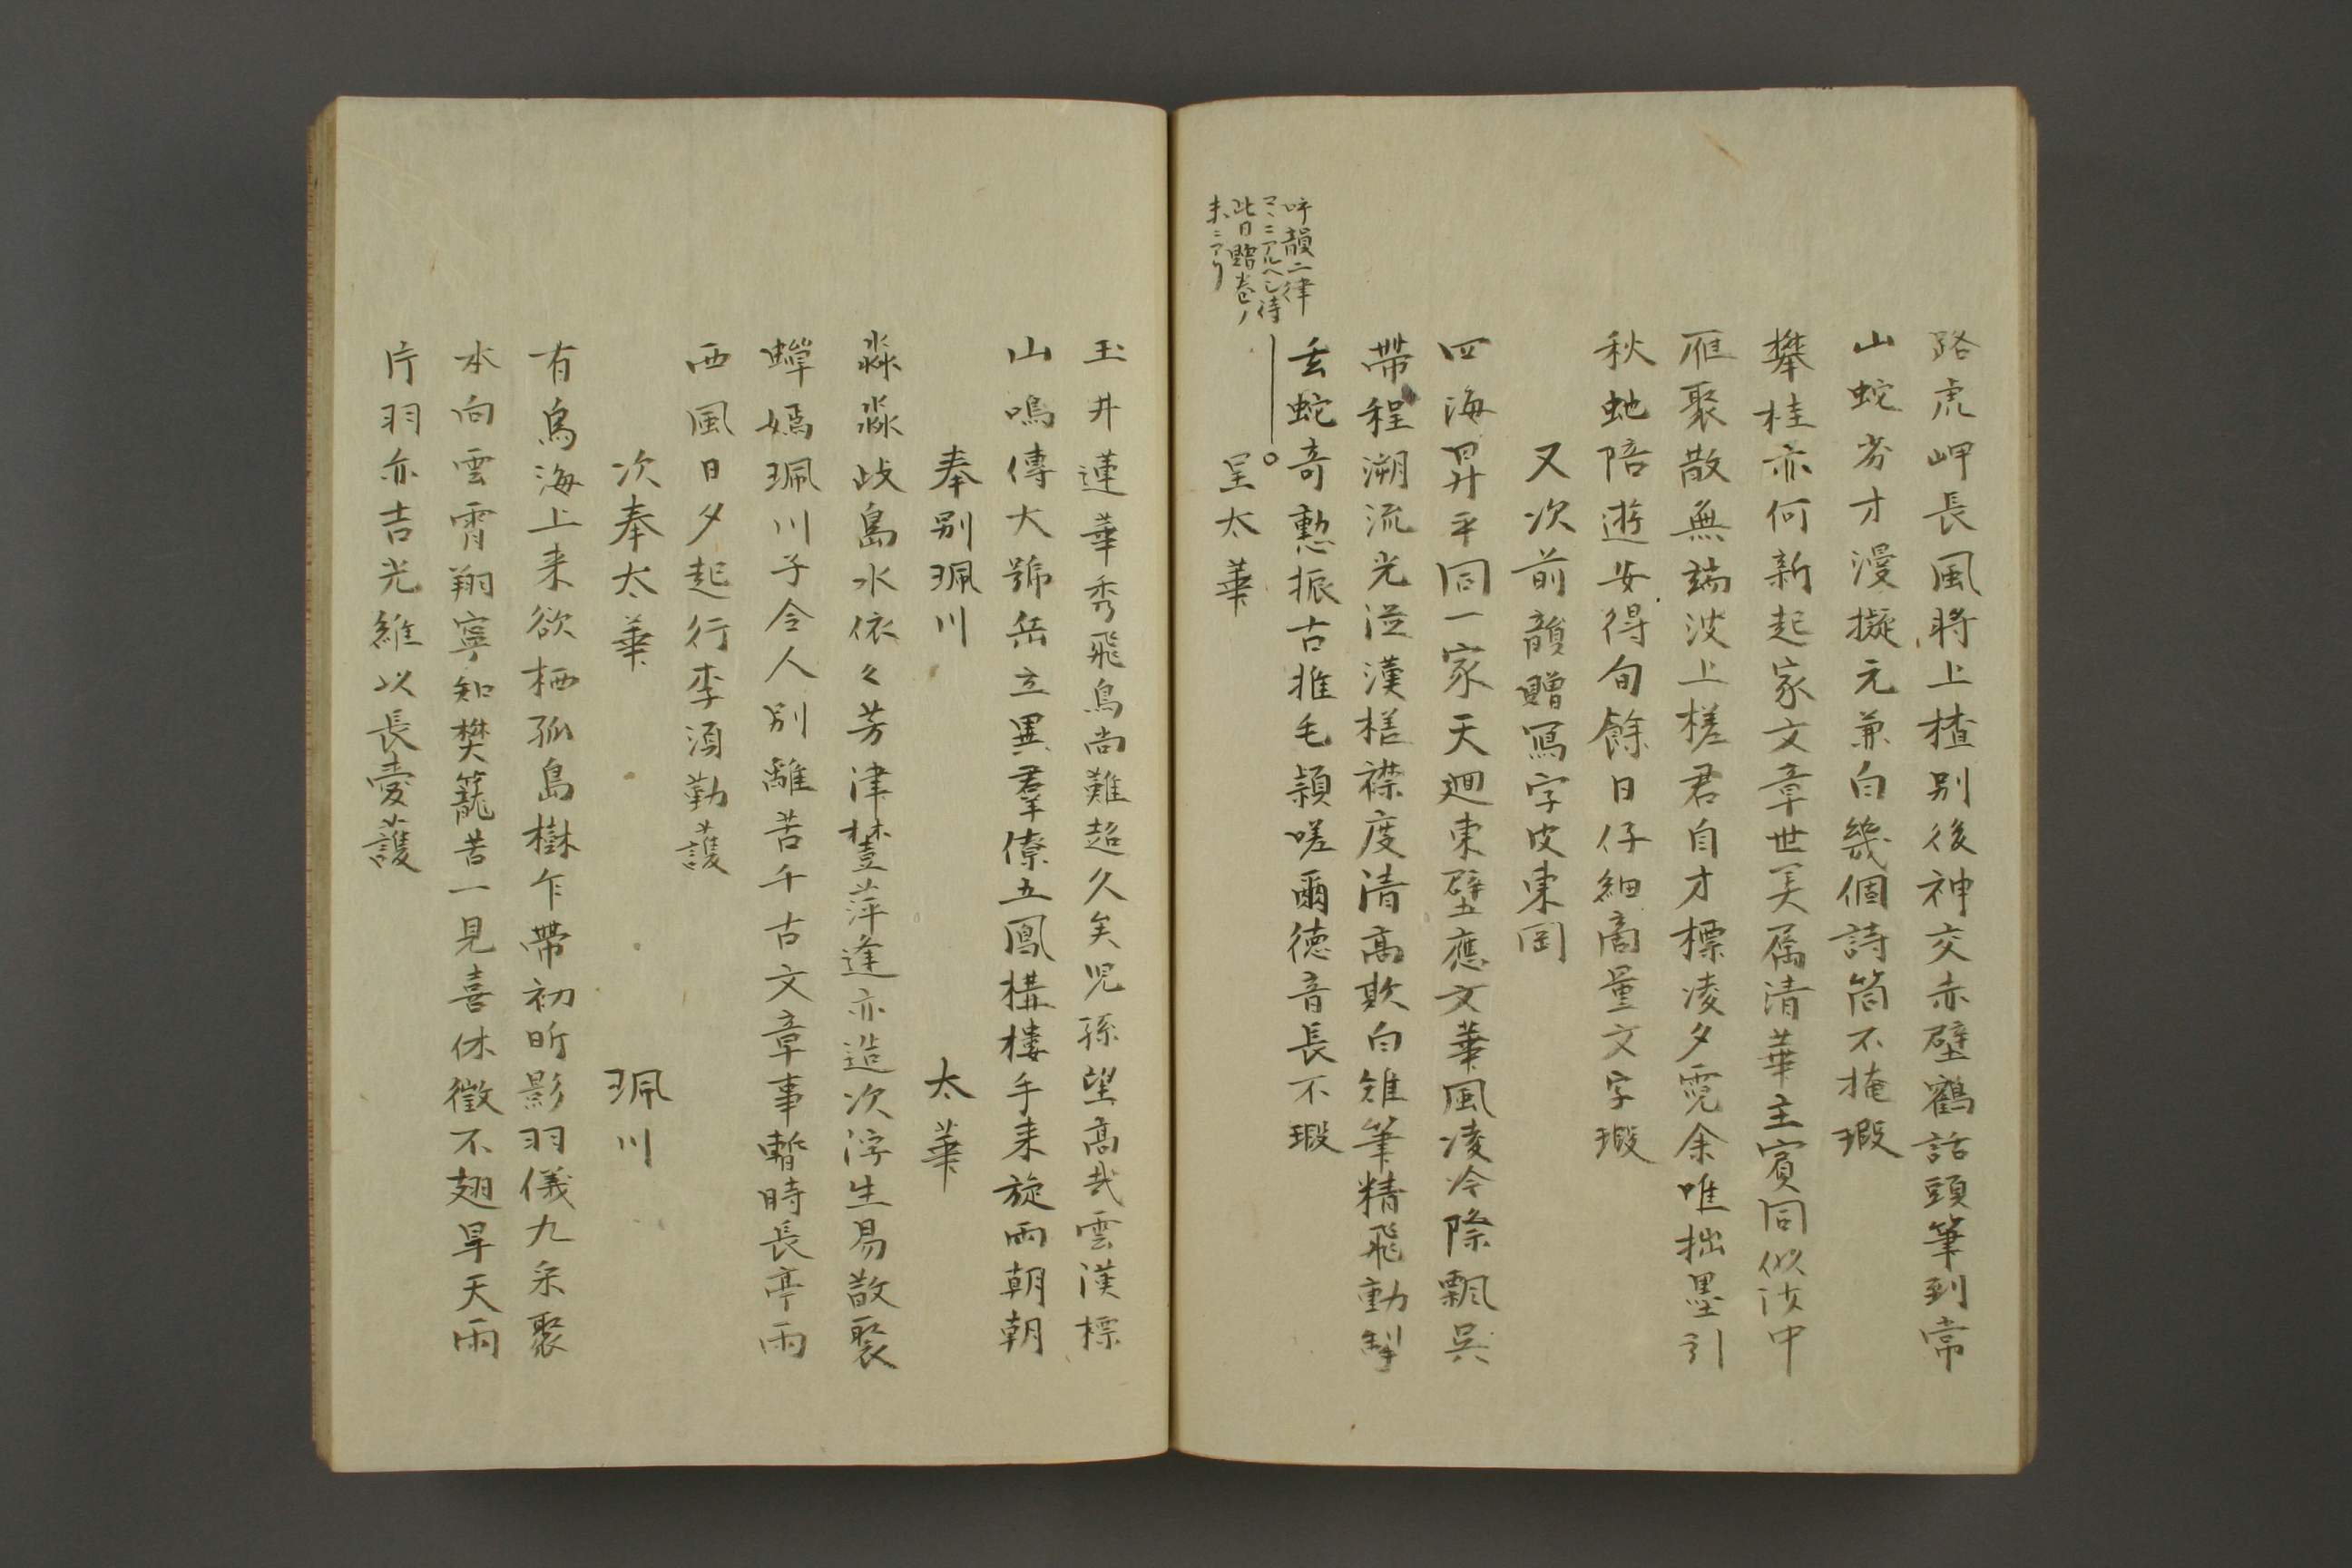 路虎岬長風將上楂別後神交赤壁鶴話頭筆到常
山蛇劣才漫擬元兼白幾個詩筒不掩瑕
攀桂亦何新起家文章世美屬清華主賓同似沙中
雁聚散無端波上槎君自才標凌夕霓余唯拙墨引
秋虵陪遊安得旬餘日仔細商量文字瑕
又次前韻贈寫字皮東岡
四海昇平同一家天廻東壁應文華風凌冷際飄吳
帶程溯流光泛漢槎襟度清高欺白雉筆精飛動掣
玄蛇奇勲振古推毛穎嗟爾徳音長不瑕
呼韻二律
コヽニアルヘシ待
此日贈答卷ノ
末ニアリ
呈太華
玉井蓮華秀飛鳥尚難超久矣児孫望髙哉雲漢標
山鳴傳大號岳立異羣僚五鳳構樓手来旋雨朝朝
奉別珮川 太華
淼淼歧島水依々芳津樹萍逢亦造次浮生易散聚
蟬嫣珮川子令人別離苦千古文章事暫時長亭雨
西風日夕起行李須勤護
次奉太華 珮川
有鳥海上来欲栖孤島樹乍帶初昕影羽儀九采聚
本向雲霄翔寧知樊籠苦一見喜休徴不翅旱天雨
片羽亦吉光維以長愛護